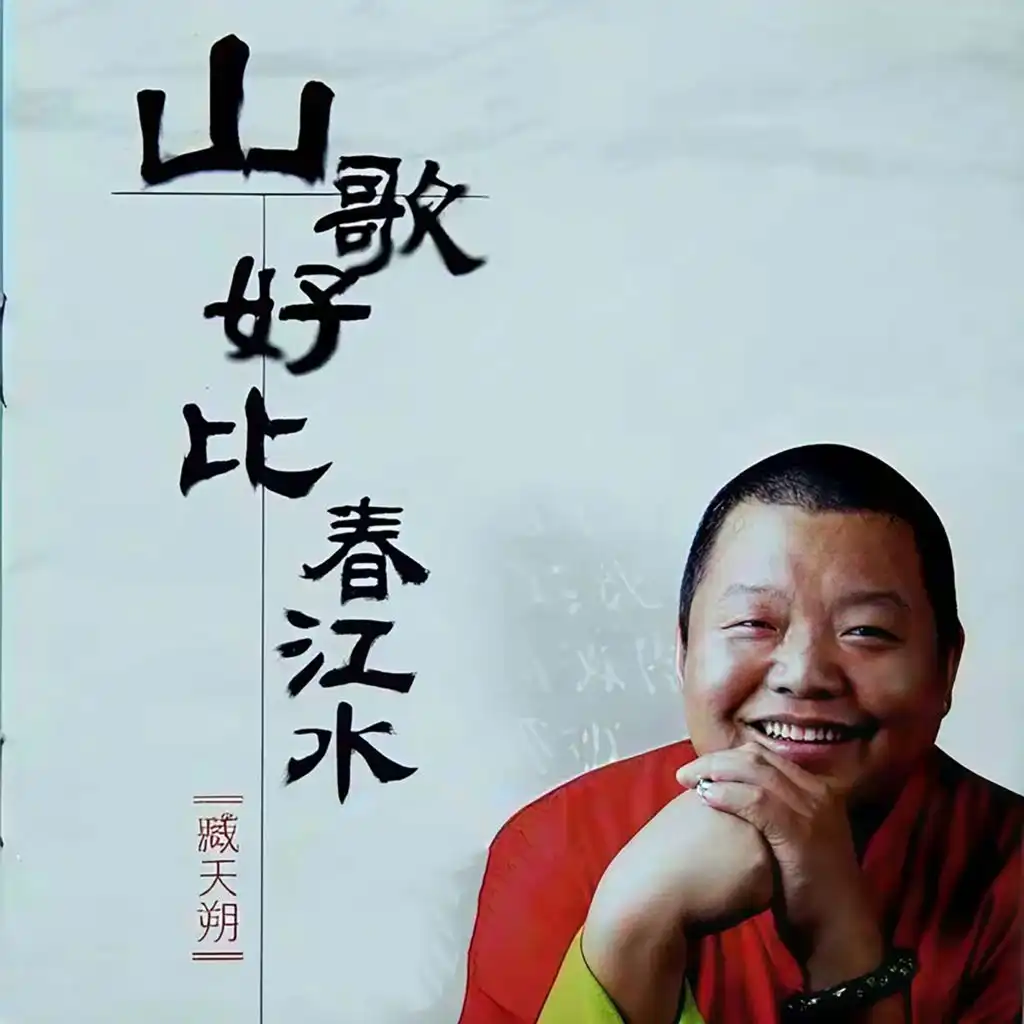 山歌
好比
春江水
臧天朔